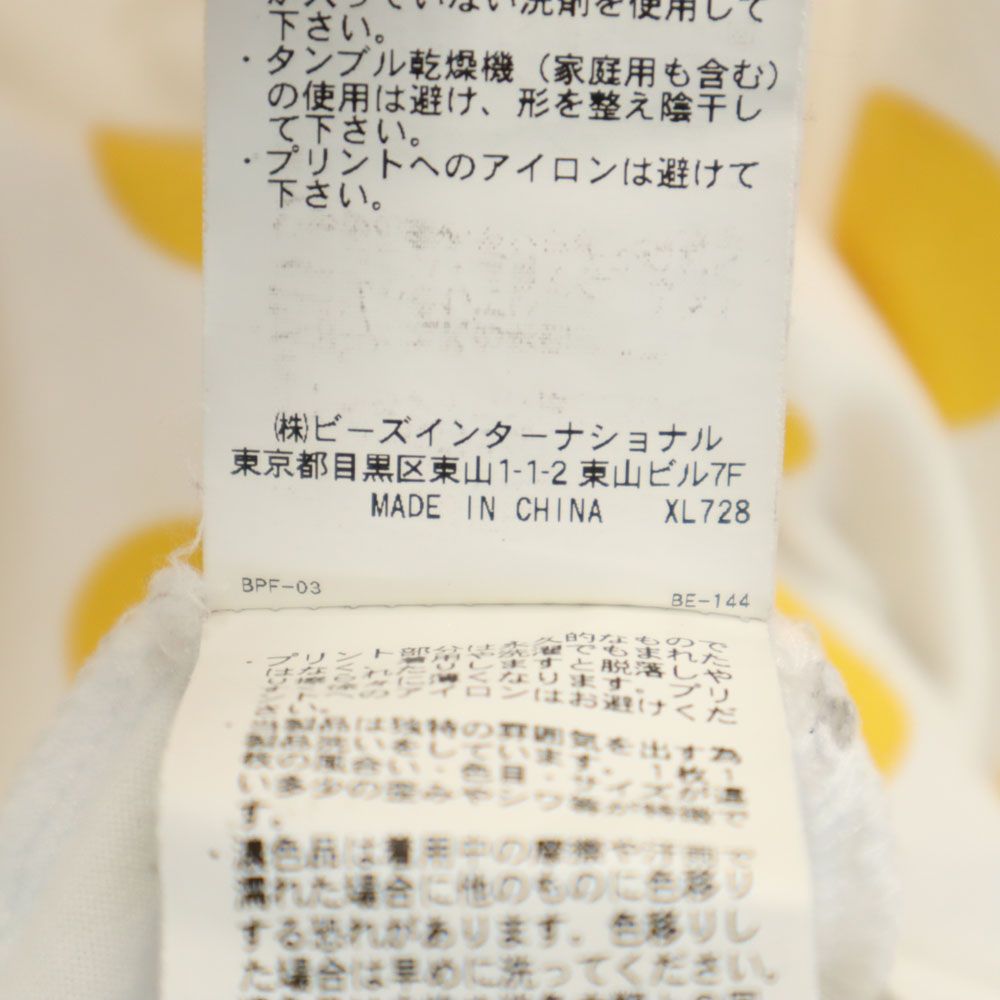 が入っていない洗剤を使用して
下さい。
・タンブル乾燥機（家庭用も含む）
の使用は避け、形を整え陰干し
て下さい。
・プリントへのアイロンは避けて
下さい。
㈱ビーズインターナショナル
東京都目黒区東山1-1-2 東山ビル7F
MADE IN CHINA XL728
BPF-03
BE-144
・プリント部分は永久的なもので
はなく、着用や洗濯でもまれたや
さい。
・当製品は独特の雰囲気を出す為
製品洗いをしています。
い多少の歪みや
す。
・濃色品は着用中の摩擦や汗雨で
濡れた場合に他のものに色移り
する恐れがあります。色移りし
た場合は早めに洗ってください。